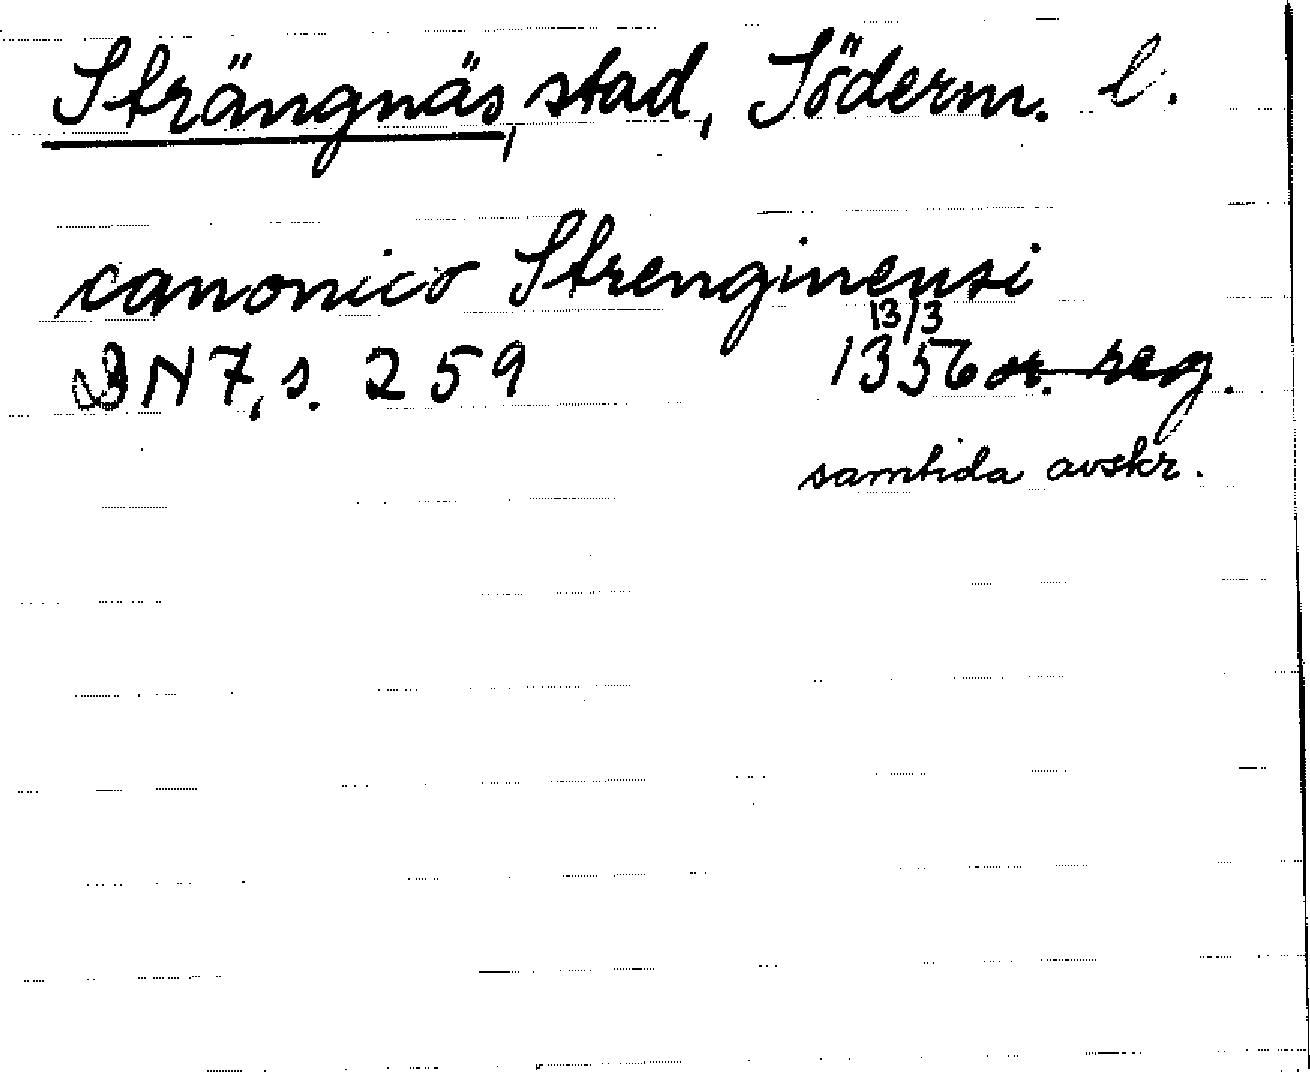 Strängnäs, stad, Söderm. l.
canonico Strenginensi
13/3
DN 7, s. 259 1356 or. reg.
samtida avskr.